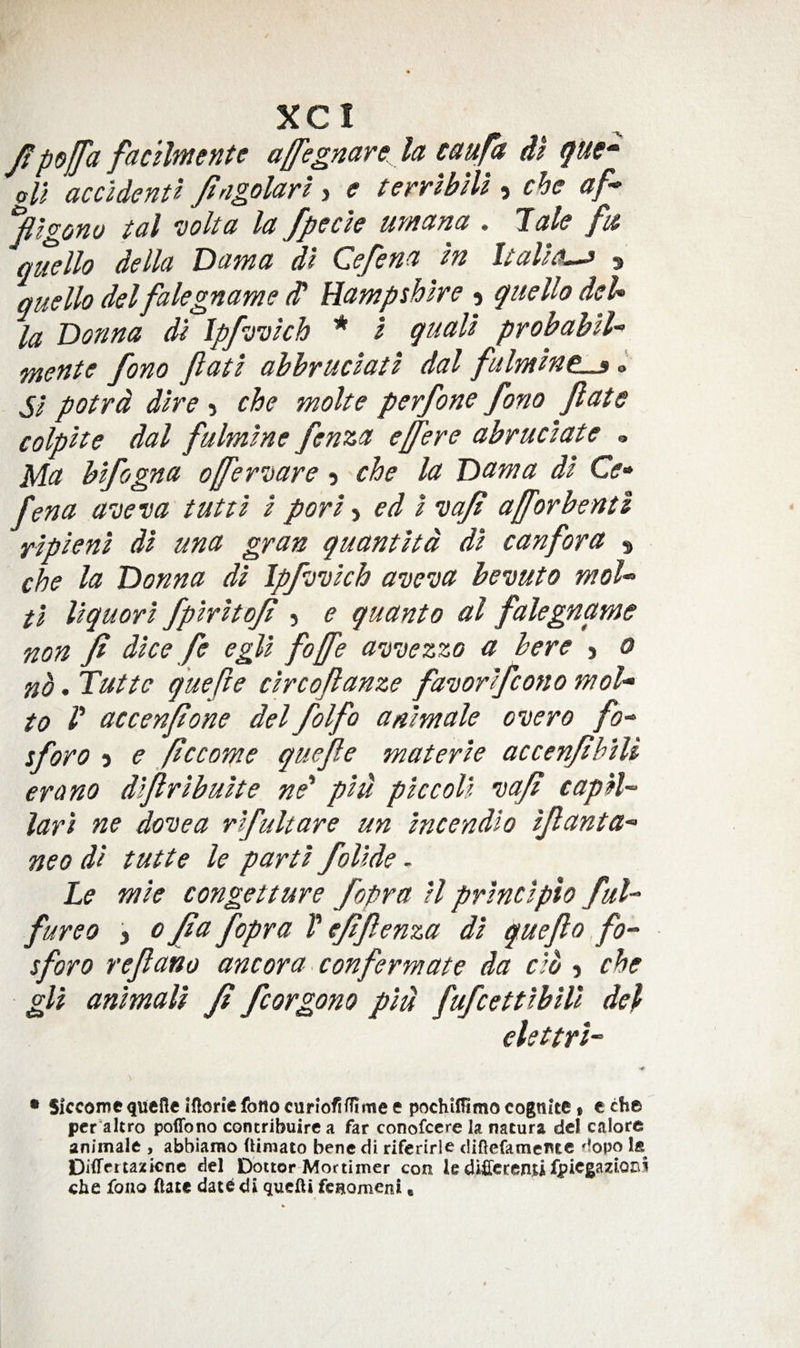 XCI
ſi poſſa facilmente aſſegnare la cauſa di que-
gli accidenti ſingolari, e terribili, che af-
fligono tal volta la ſpecie umana. Tale fu
quello della Dama di Ceſena in Italia,
quello del falegname d' Hampshire, quello del-
la Donna di Ipſvvich * i quali probabil-
mente ſono ſtati abbruciati dal fulmine.
Si potrà dire, che molte perſone ſono ſtate
colpite dal fulmine ſenza eſſere abruciate.
Ma biſogna oſſervare, che la Dama di Ce-
ſena aveva tutti i pori, ed i vaſi aſſorbenti
ripieni di una gran quantità di canfora,
che la Donna di Ipſvvich aveva bevuto mol-
ti liquori ſpiritoſi, e quanto al falegname
non ſi dice ſe egli foſſe avvezzo a bere, o
nò. Tutte queſte circoſtanze favoriſcono mol-
to l' accenſione del ſolfo animale overo fo-
sforo, e ſiccome queſte materie accenſibili
erano diſtribuite ne' più piccoli vaſi capil-
lari ne dovea riſultare un incendio iſtanta-
neo di tutte le parti ſolide.
Le mie congetture ſopra il principio ſul-
fureo, o ſia ſopra l' eſiſtenza di queſto fo-
sforo reſtano ancora confermate da ciò, che
gli animali ſi ſcorgono più ſuſcettibili del
elettri-
* Siccome queſte iſtorie ſono curioſiſſime e pochiſſimo cognite, e che
per altro poſſono contribuire a far conoſcere la natura del calore
animale, abbiamo ſtimato bene di riferirle diſteſamente dopo la
Diſſertazione del Dottor Mortimer con le differenti ſpiegazioni
che ſono ſtate date di queſti fenomeni.